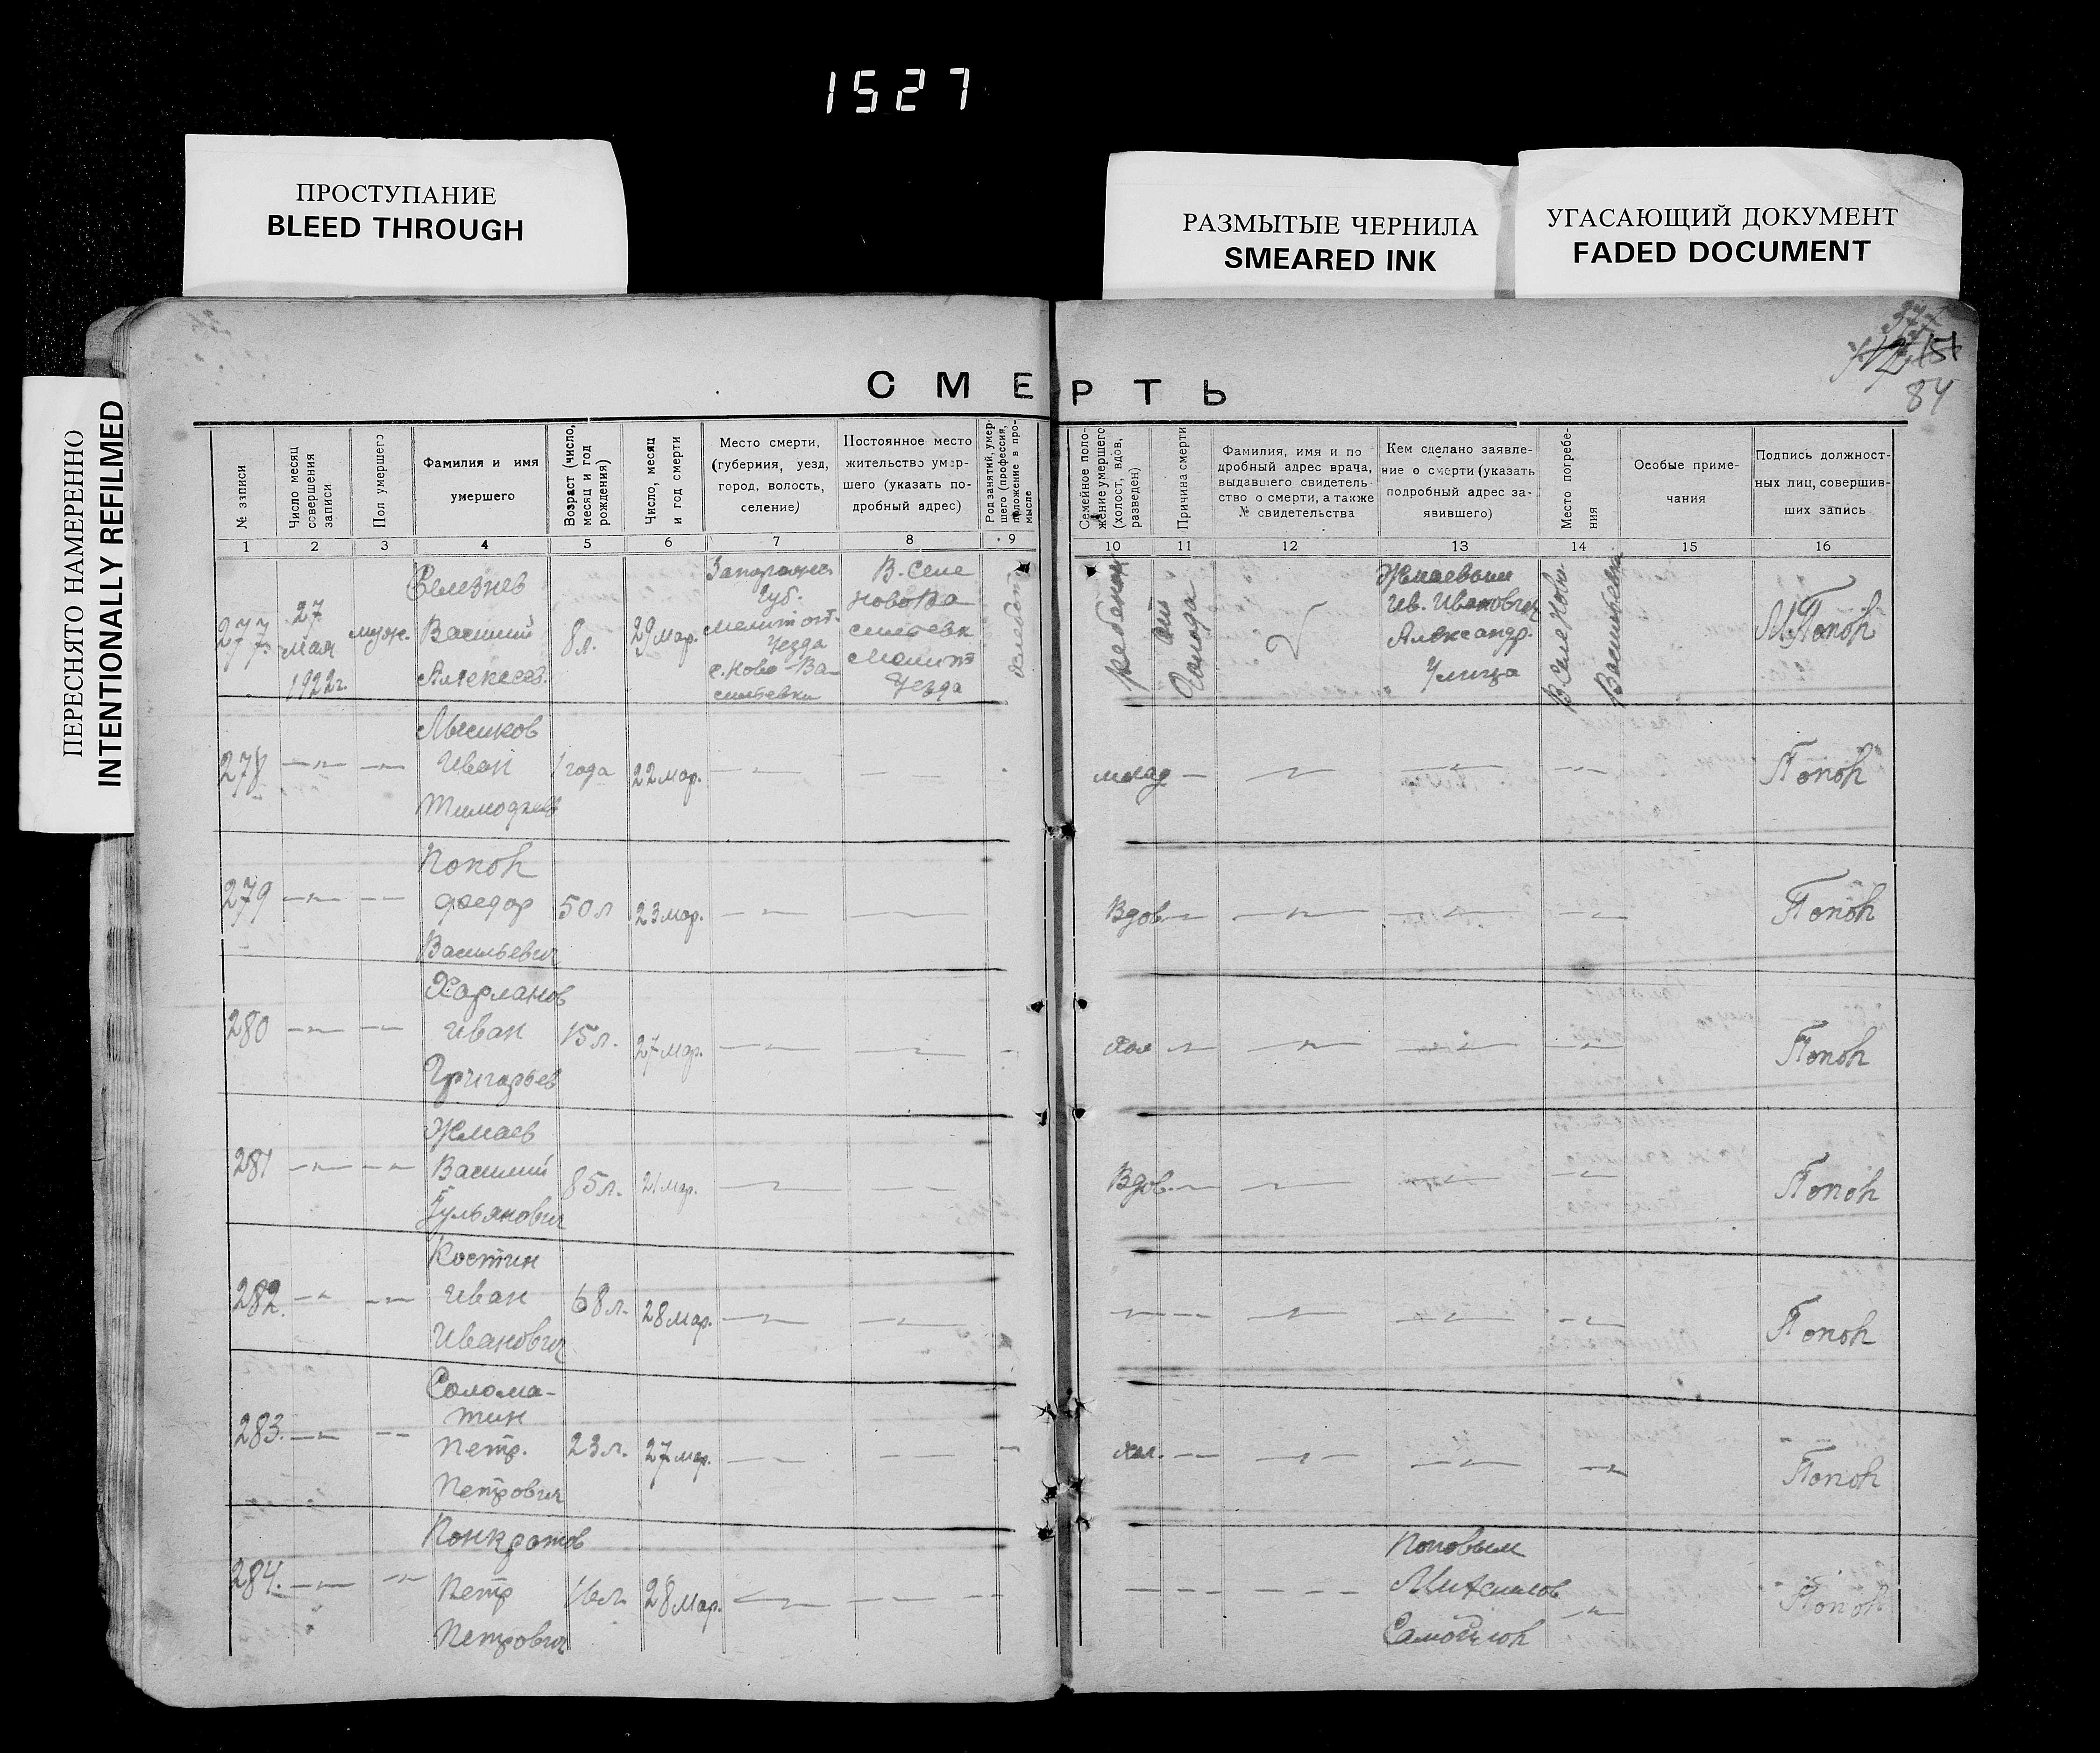 1527
ПРОСТУПАНИЕ
BLEED THROUGH
РАЗМЫТЫЕ ЧЕРНИЛА
SMEARED INK
УГАСАЮЩИЙ ДОКУМЕНТ
FADED DOCUMENT
ПЕРЕСНЯТО НАМЕРЕННО
INTENTIONALLY REFILMED
84
СМЕРТЬ
№ записи
Число месяц
совершения
записи
Пол умершего
Фамилия и имя
умершего
Возраст (число,
месяц и год
рождения)
Число, месяц
и год смерти
Место смерти,
(губерния, уезд,
город, волость,
селение)
Постоянное место
жительство умер-
шего (указать по-
дробный адрес)
Род занятий, умер-
шего (профессия,
положение в про-
мысле
Семейное поло-
жение умершего
(холост, вдов,
разведен)
Причина смерти
Фамилия, имя и по
дробный адрес врача,
выдавшего свидетель-
ство о смерти, а также
№ свидетельства
Кем сделано заявле-
ние о смерти (указать
подробный адрес за-
явившего)
Место погребе-
ния
Особые приме-
чания
Подпись должност-
ных лиц, совершив-
ших запись
1 2 3 4 5 6 7 8 9 10 11 12 13 14 15 16
277
27
мая
1922г.
муж.
Селезнев
Василий
Алексеев.
8л.
29 мар.
Запорожс.
Губ.
Мелитоп.
Уезда
с. Ново-Ва-
сильевки
В. Селе
Ново Ва
сильевк
Мелит
Уезда
хлебоп
ребенок
от
Голода
Жмаевым
Ив. Иванович
Александр.
Улица
В Селе Ново
Васильевки
М Попов
278
Мысиков
Иван
Тимофеев
1 года
22 мар.
млад
Попов
279
Попов
Федор
Васильевич
50 л
23 мар.
Вдов
Попов
280
Харланов
Иван
Григорьев
15 л.
27 мар.
Хол
Попов
281
Жмаев
Василий
Гульянович
85 л.
21 мар.
Вдов.
Попов
282.
Костин
Иван
Иванович
68 л.
28 мар.
Попов
283.
Солома-
тин
Петр.
Петрович
23 л.
27 мар.
хол.
Попов
284.
Понкратов
Петр
Петрович
16 л.
28 мар.
Поповым
Михаилов
Самойлов
Попов